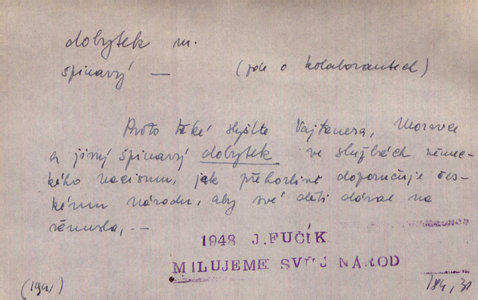 dobytek m.
špinavý — (jde o kolaborantech)
Proto také slyšíte Vajtauera, Moravce
a jiný špinavý dobytek ve službách němec-
kého nacismu, jak přehorlivě doporučuje čes-
kému národu, aby své děti dával na
řemesla, —
1948 J. FUČÍK
MILUJEME SVŮJ NÁROD
(1941) 184, 31